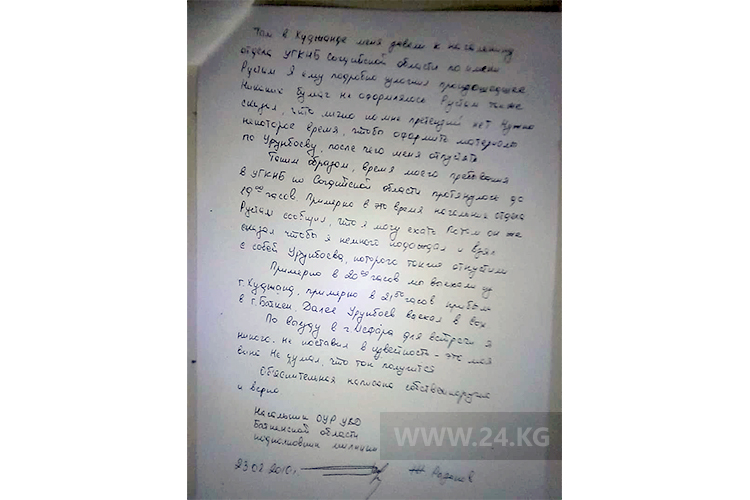 Там в Худжанде меня завели к начальнику
отдела УГКНБ Согдийской области по имени
Рустам. Я ему подробно изложил произошедшее
Никаких бумаг не оформлялось. Рустам также
сказал, что лично ко мне претензий нет. Нужно
некоторое время, чтобы оформить материалы
по Урунбаеву, после чего меня отпустят
Таким образом, время моего пребывания
в УГКНБ по Согдийской области протянулось до
19:00 часов. Примерно в это время начальник отдела
Рустам сообщил, что я могу ехать. Потом он же
сказал чтобы я немного подождал и взял
с собой Урунбаева, которого также отпустили
Примерно в 20:00 часов мы выехали из
г. Худжанд, примерно в часов прибыли
в г. Баткен. Далее Урунбаев
По выезду в г Исфара для встречи я
никого, не поставил в известность - это моя
вина. Не думал, что так получится
Объяснительная написана собственноручно
и верно
Начальник ОУР УВД
Баткенской области
подполковник милиции
23.02.2010 г.
WWW.24.KG